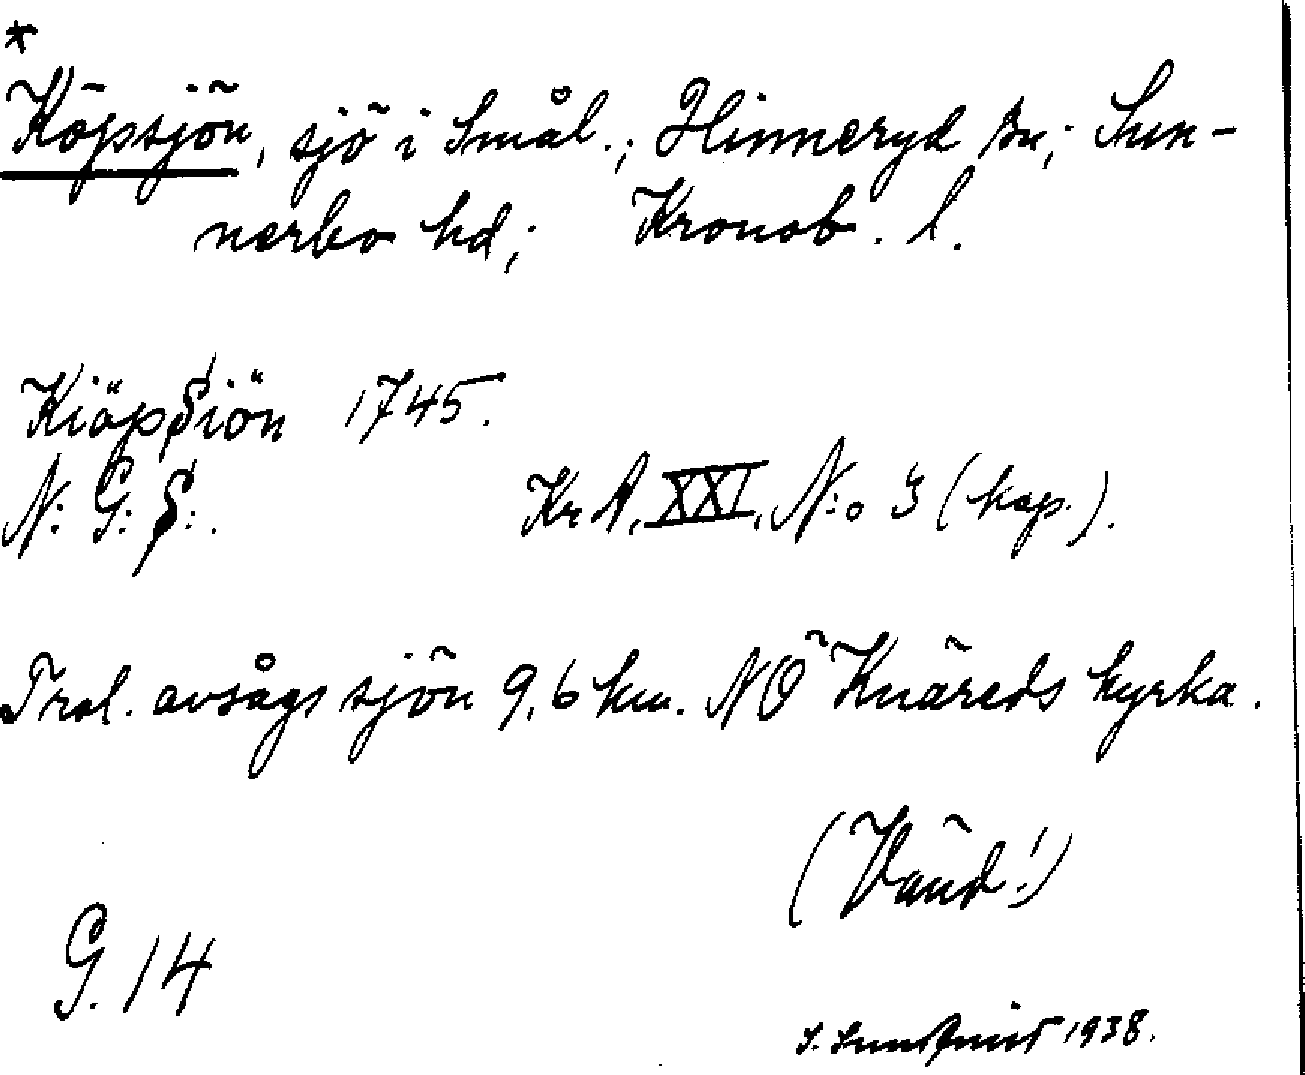 *
Köpsjön, sjö i Smål.; Hinneryd sn; Sun-
nerbo hd; Kronob. l.
Kiöpsiön 1745.
N: G: S:.
KrA. XXI, N:o 3 (kop.).
Trol. avsågs sjön 9,6 km. NÖ Knäreds kyrka.
(Vänd!)
G. 14
S. Sundqvist 1938.